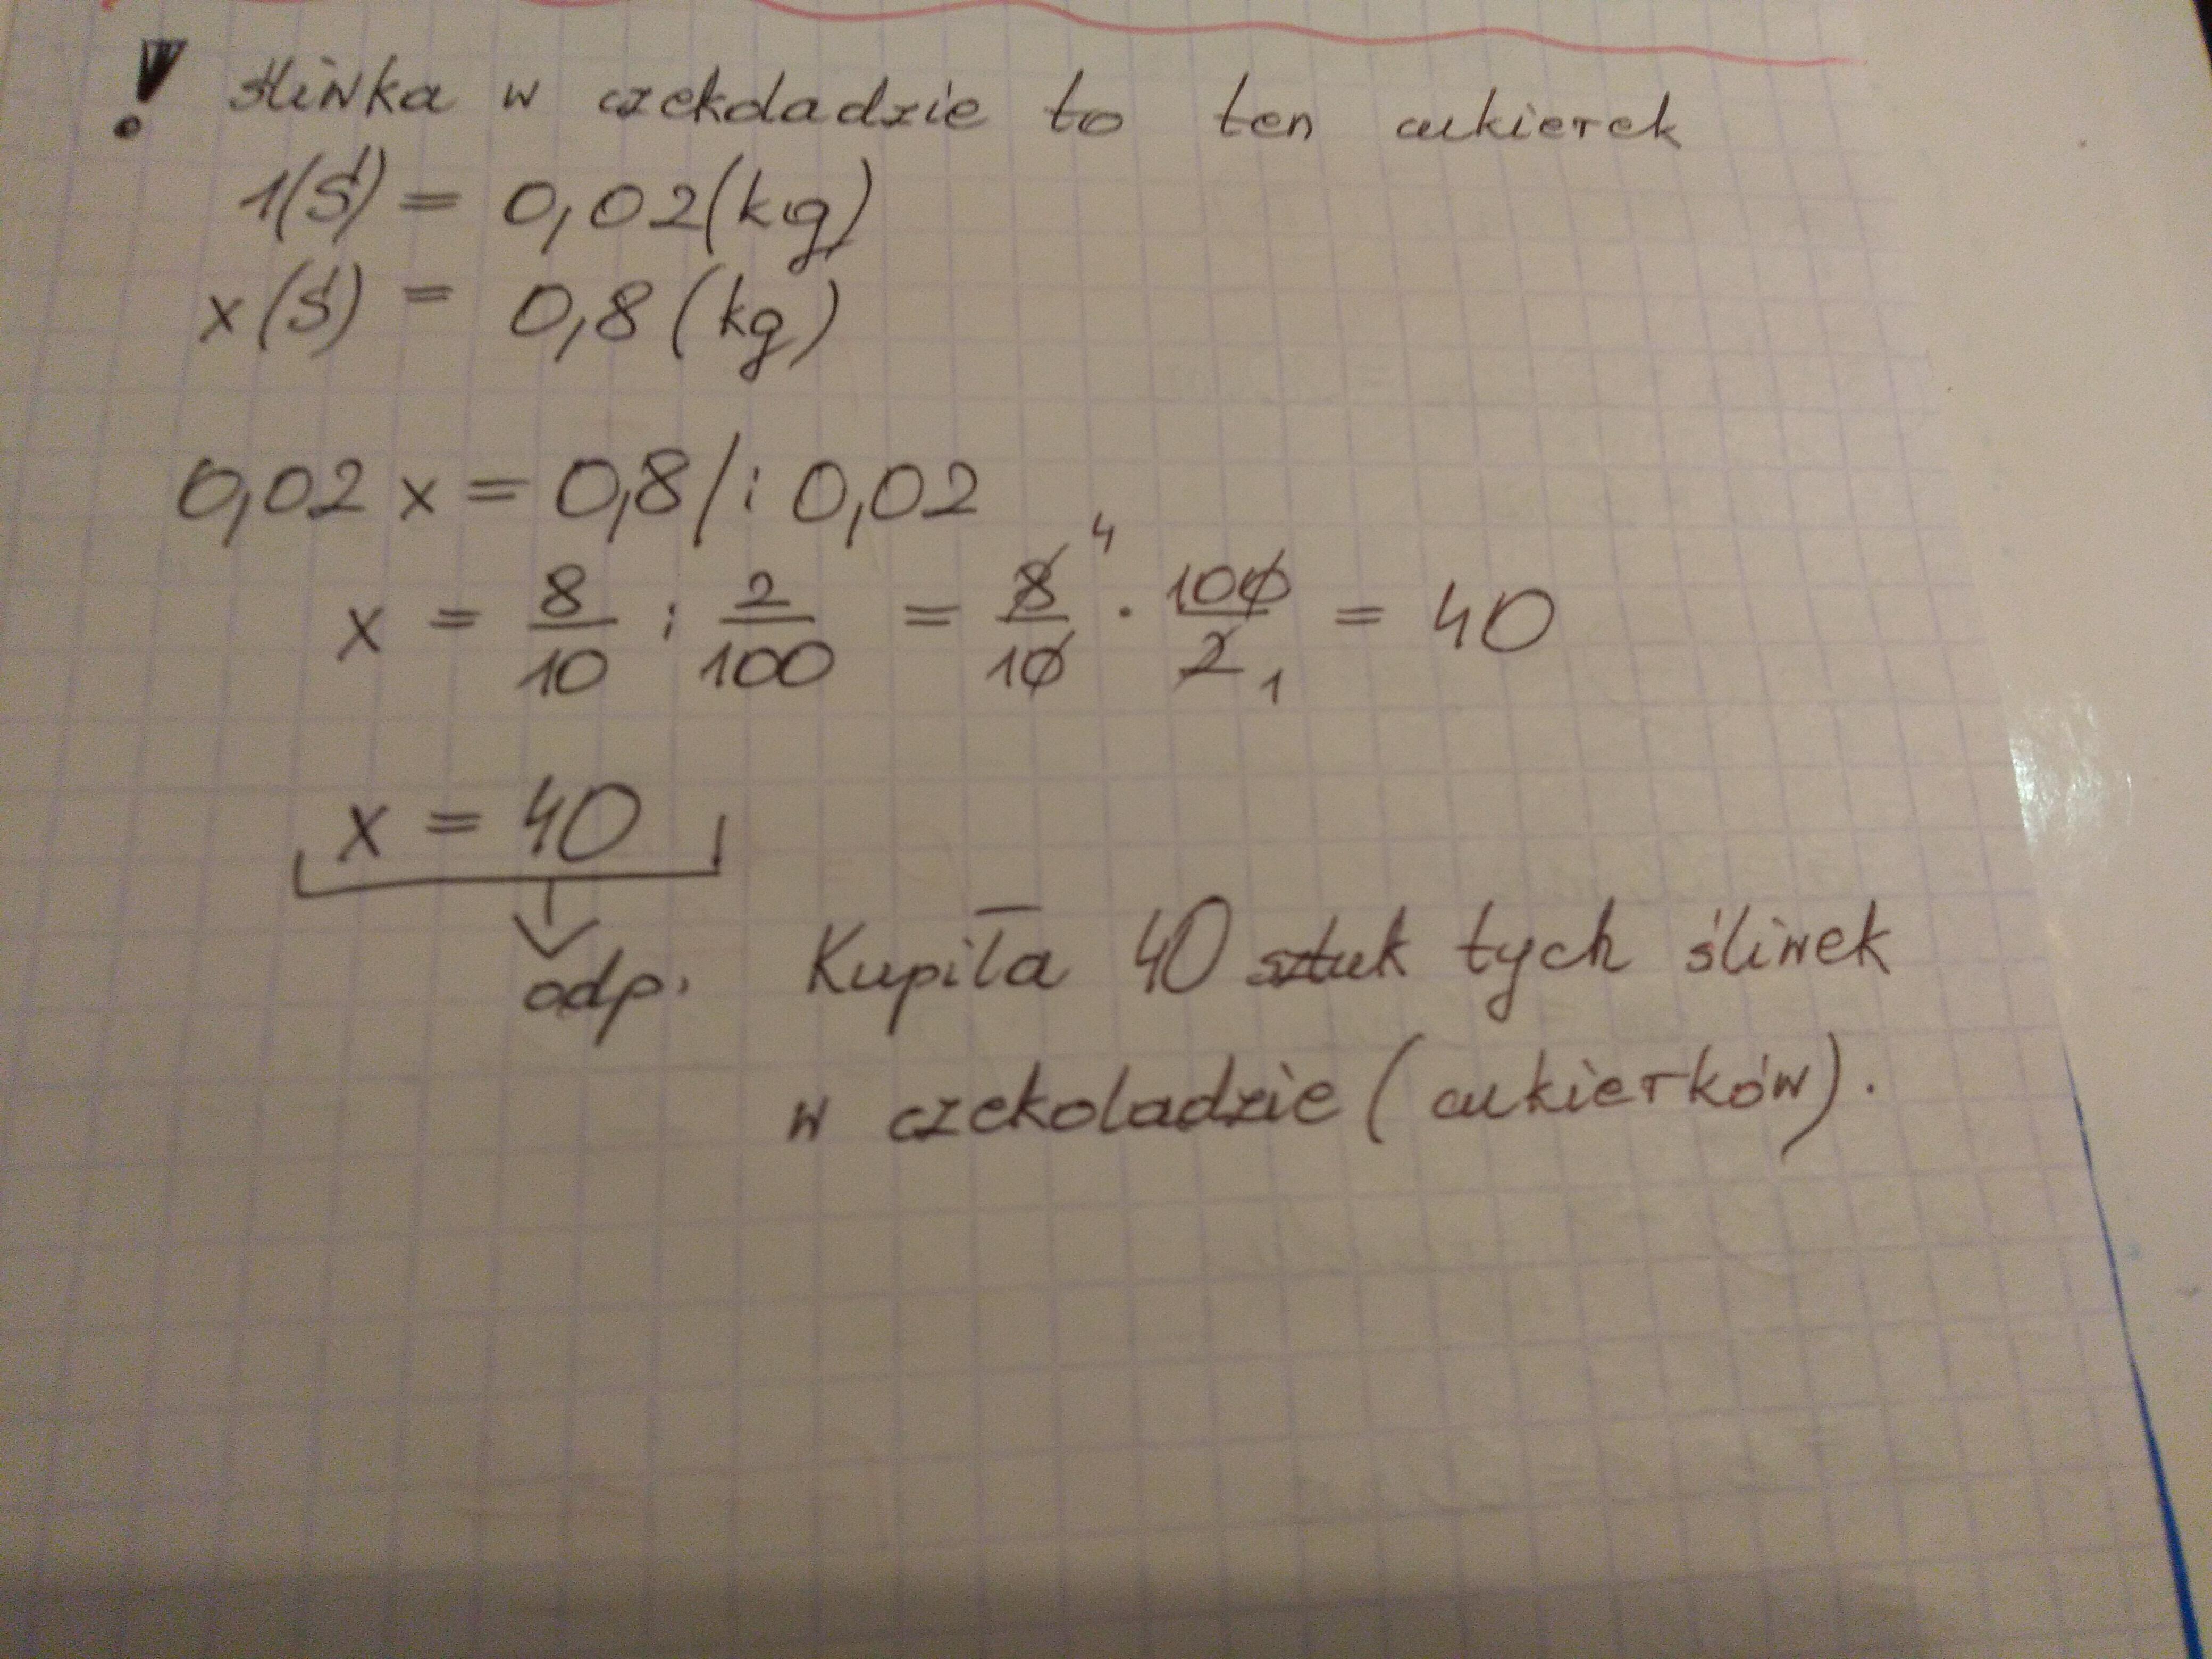 ! śliwka w czekoladzie to ten cukierek
1(Ś) = 0,02(kg)
x(Ś) = 0,8(kg)
0,02x = 0,8/:0,02
x = 8/10 : 2/100 = 8/10 4 · 100/2 1 = 40
x = 40
odp. Kupiła 40 sztuk tych śliwek
w czekoladzie (cukierków).